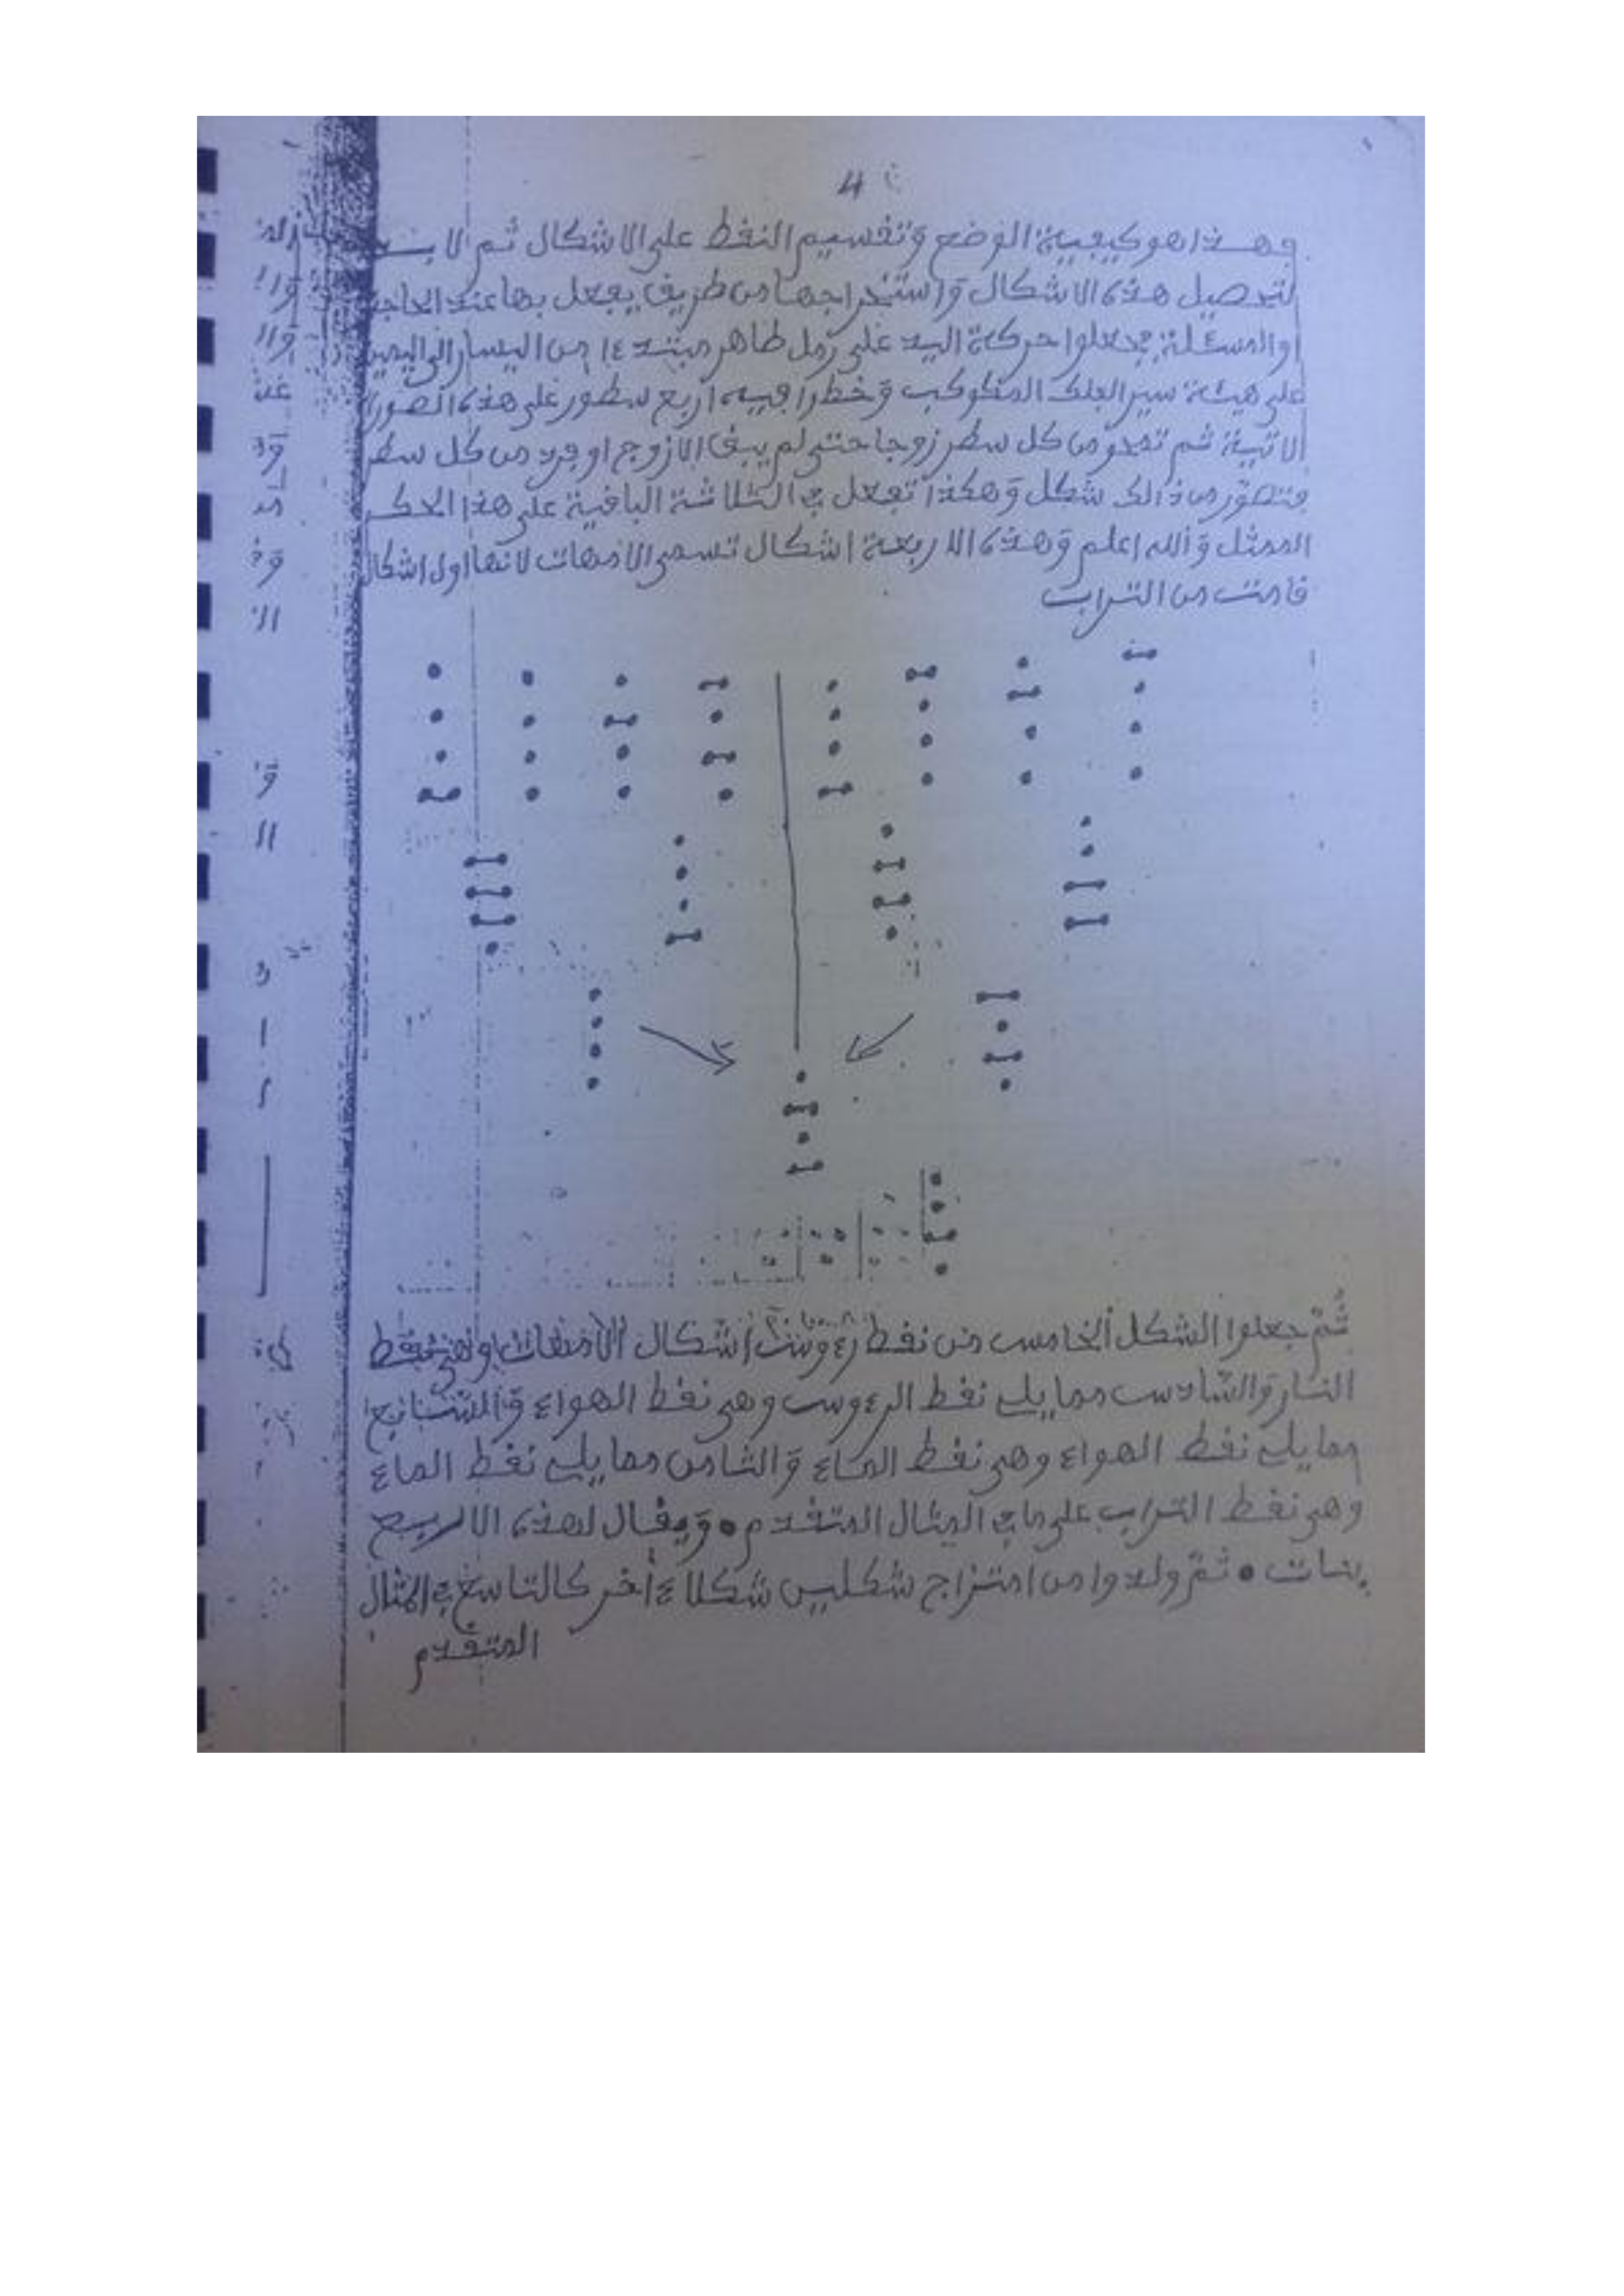 4
وهذا هو كيفية الوضع وتقسيم النقط على الاشكال ثم لا بد
لتحصيل هذه الاشكال واستخراجها من طريق يفعل بها عند الحاجة
والمسئلة فجعلوا حركة اليد على رمل طاهر مبتدءا من اليسار الى اليمين
على هيئة سير الفلك المكوكب وخطوا فيه اربع سطور على هذه الصورة
الاتية ثم تمحو من كل سطر زوجا حتى لم يبق الا زوج او فرد من كل سطر
فتصور من ذالك شكل وهكذا تفعل في الثلاثة الباقية على هذا الحكم
الممثل والله اعلم وهذه الاربعة اشكال تسمى الامهات لانها اول اشكال
قامت من التراب
ثم جعلوا الشكل الخامس من نقط رءوس اشكال الامهات وهي نقط
النار والسادس مما يلي نقط الرءوس وهي نقط الهواء والسابع
مما يلي نقط الهواء وهي نقط الماء والثامن مما يلي نقط الماء
وهي نقط التراب على ما في المثال المتقدم • ويقال لهذه الاربع
بنات • ثم ولدوا من امتزاج شكلين شكلا ءاخر كالتاسع في المثال
المتقدم